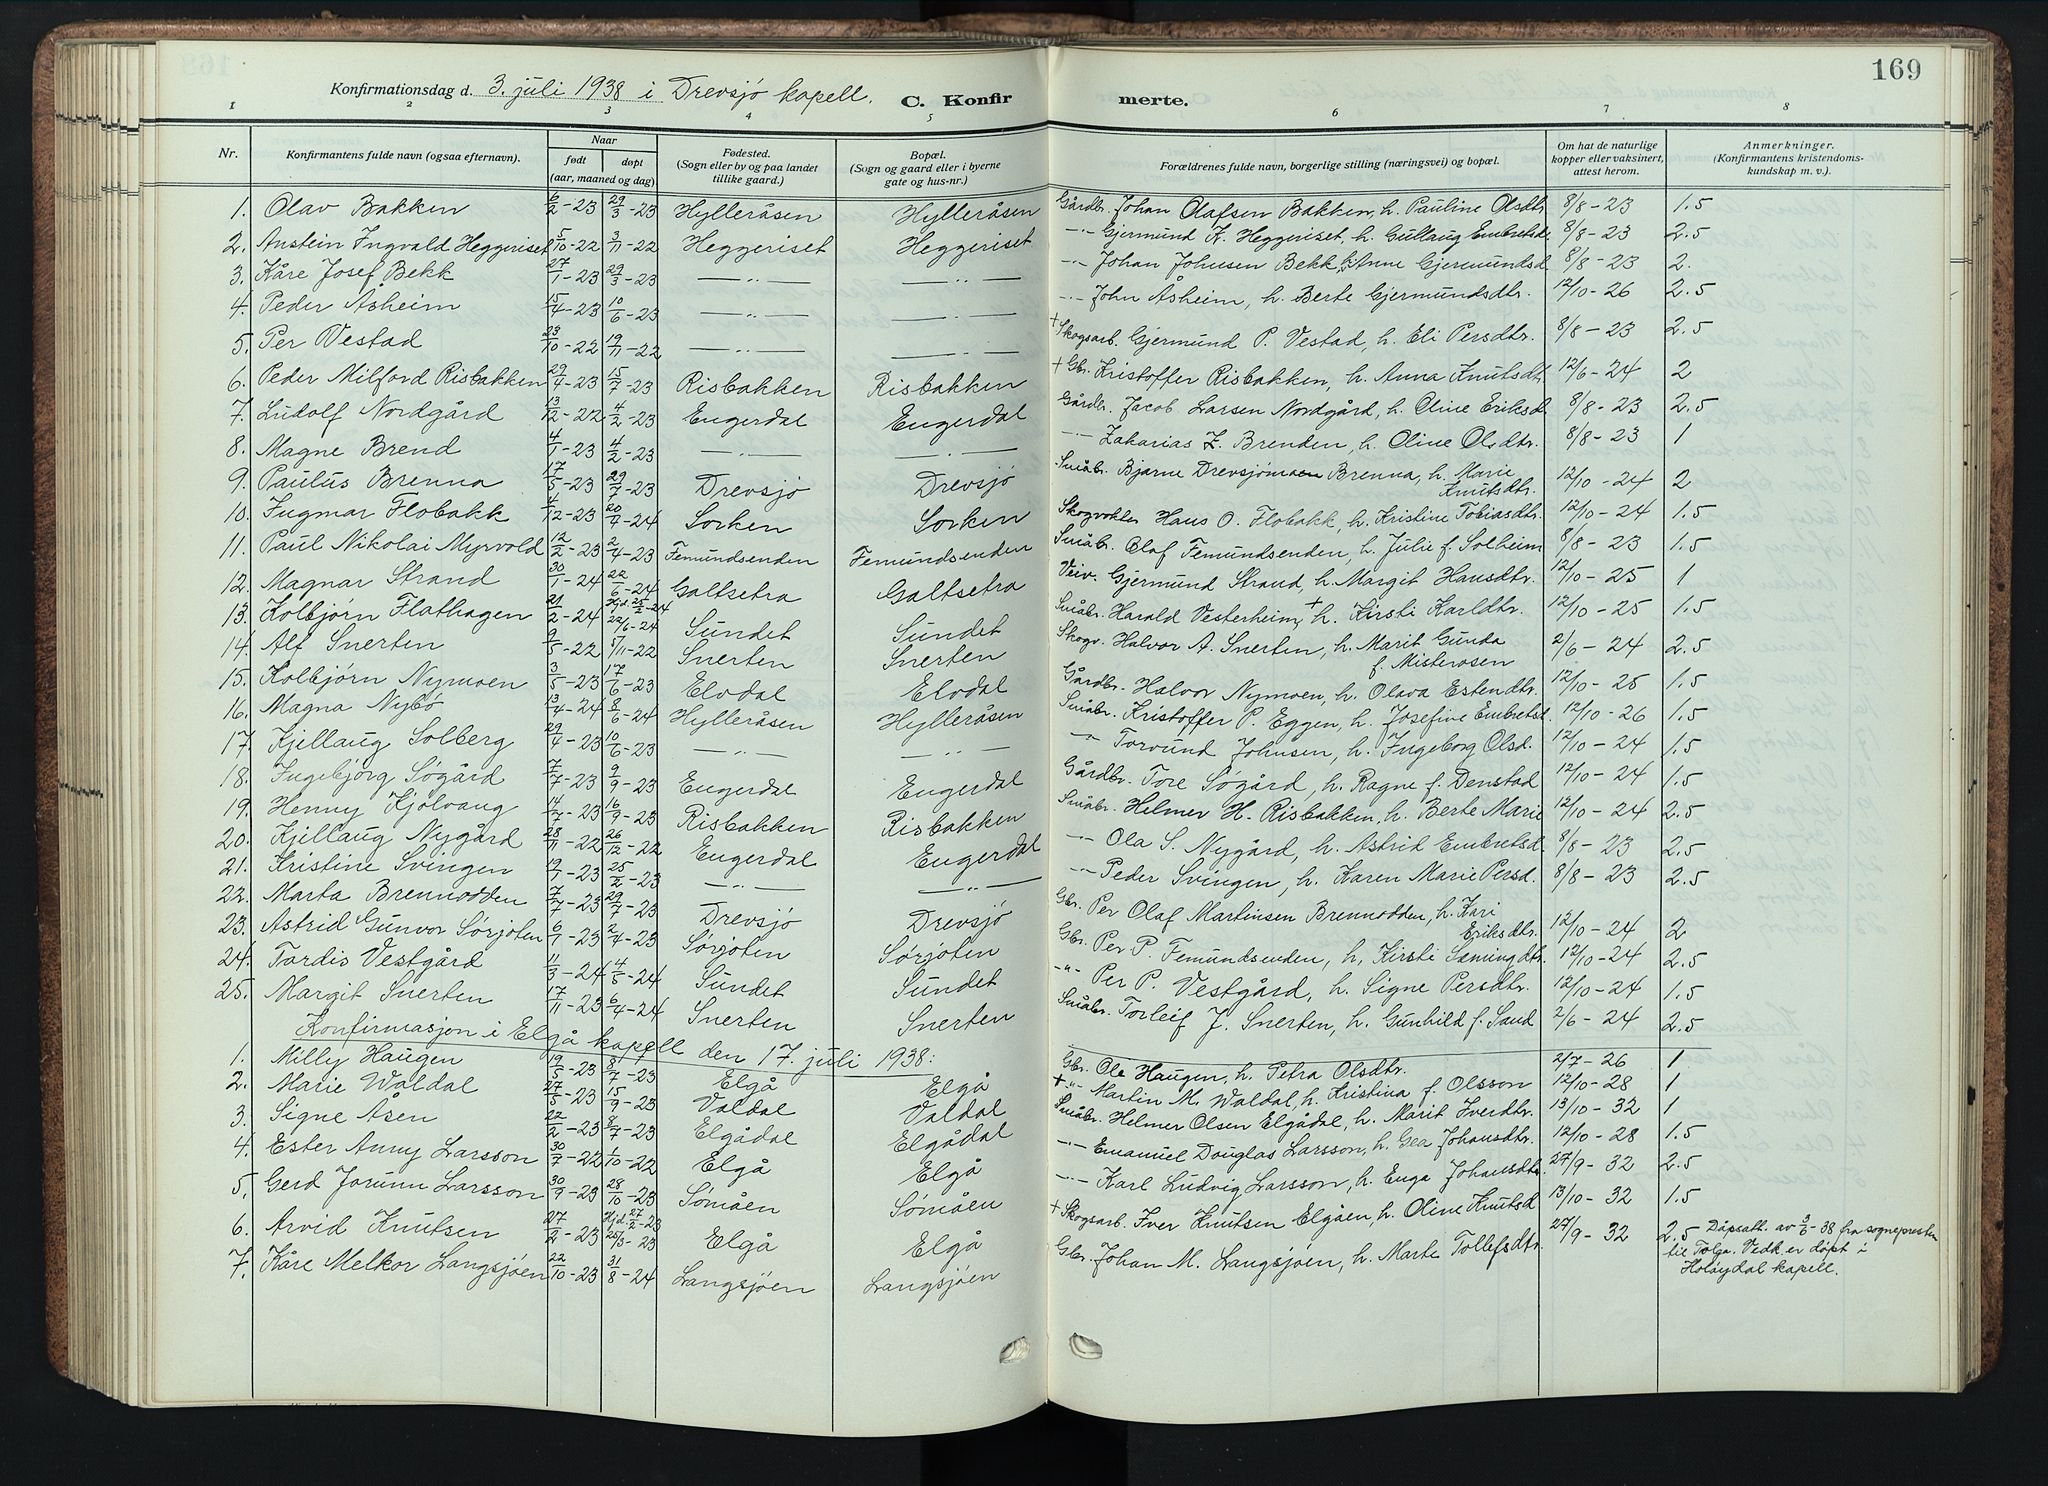 169
Konfirmationsdag d. 3. juli 1938 i Drevsjø kapell. C. Konfirmerte.
1 2 3 4 5 6 7 8
Nr. Konfirmantens fulde navn (ogsaa efternavn). Naar født døpt (aar, maaned og dag) Fødested. (Sogn eller by og paa landet tillike gaard.) Bopæl. (Sogn og gaard eller i byerne gate og hus-nr.) Forældrenes fulde navn, borgerlige stilling (næringsvei) og bopæl. Om hat de naturlige kopper eller vaksinert, attest herom. Anmerkninger. (Konfirmantens kristendomskundskap m. v.).
1. Olav Bakken 6/2-23 29/3-23 Hylleråsen Hylleråsen Gårdbr. Johan Olafsen Bakken, h. Pauline Olsdtr. 8/8-23 1.5
2. Anstein Ingvald Heggeriset 5/10-22 3/11-22 Heggeriset Heggeriset -"- Gjermund K. Heggeriset, h. Gullaug Embretsd. 8/8-23 2.5
3. Kåre Josef Bekk 27/1-23 29/3-23 -"- -"- -"- Johan Johnsen Bekk, h. Anne Gjermundsd. 8/8-23 2.
4. Peder Åsheim 15/4-23 10/6-23 -"- -"- -"- John Åsheim, h. Berte Gjermundsdtr. 12/10-26 2.5
5. Per Vestad 23/10-22 19/11-22 -"- -"- + Skogsarb. Gjermund P. Vestad, h. Eli Persdtr. 8/8-23 2.5
6. Peder Milford Risbakken 29/4-23 15/7-23 Risbakken Risbakken + Gbr. Kristoffer Risbakken, h. Anna Knutsdtr. 12/6-24 2
7. Ludolf Nordgård 13/12-22 4/2-23 Engerdal Engerdal Gårdbr. Jacob Larsen Nordgård, h. Oline Eriksd. 8/8-23 2.5
8. Magne Brend 4/1-23 4/2-23 -"- -"- -"- Zakarias Z. Brenden, h. Oline Olsdtr. 8/8-23 1
9. Paulus Brenna 17/5-23 29/7-23 Drevsjø Drevsjø Småbr. Bjarne Drevsjømoen Brenna, h. Marie Knutsdtr. 12/10-24 2
10. Ingmar Flobakk 4/12-23 20/4-24 Sorken Sorken Skogvokter Hans O. Flobakk, h. Kristine Tobiasdtr. 12/10-24 1.5
11. Paul Nikolai Myrvold 12/2-23 2/4-23 Femundsenden Femundsenden Småbr. Olaf Femundsenden, h. Julie f. Solheim 8/8-23 1.5
12. Magnar Strand 30/1-24 22/6-24 Galtsetra Galtsetra Veiv. Gjermund Strand, h. Margit Hansdtr. 12/10-25 1
13. Kolbjørn Flathagen 21/2-24 Hjd. 25/2-24 22/6-24 Sundet Sundet Småbr. Harald Vesterheim, + h. Kirsti Karldtr. 12/10-25 1.5
14. Alf Snerten 9/5-22 5/11-22 Snerten Snerten Skogv. Halvor A. Snerten, h. Marit Gunda f. Misterosen 2/6-24 2.5
15. Kolbjørn Nymoen 3/5-23 17/6-23 Elvdal Elvdal Gårdbr. Halvor Nymoen, h. Olava Estendtr. 12/10-25 1.5
16. Magna Nybø 13/4-24 8/6-24 Hylleråsen Hylleråsen Småbr. Kristoffer P. Eggen, h. Josefine Embretsd. 12/10-26 1.5
17. Kjellaug Solberg 29/4-23 10/6-23 -"- -"- -"- Torvund Johnsen, h. Ingeborg Olsd. 12/10-24 1.5
18. Ingebjørg Søgård 7/7-23 9/9-23 Engerdal Engerdal Gårdbr. Tore Søgård, h. Ragne f. Denstad 12/10-24 1.5
19. Henny Kjølvang 14/7-23 16/9-23 Risbakken Risbakken Småbr. Helmer H. Risbakken, h. Berte Marie 12/10-24 2.5
20. Kjellaug Nygård 28/11-22 26/12-22 Engerdal Engerdal -"- Ola S. Nygård, h. Astrid Embretsd. 8/8-23 2.5
21. Kristine Svingen 19/1-23 25/2-23 -"- -"- -"- Peder Svingen, h. Karen Marie Persd. 8/8-23 2.5
22. Marta Brennodden 7/7-23 29/7-23 Drevsjø Drevsjø Gbr. Per Olaf Martinsen Brennodden, h. Kari Eriksdtr. 12/10-24 2
23. Astrid Gunvor Sørjoten 6/1-23 2/4-23 Sørjoten Sørjoten Gbr. Per P. Femundsenden, h. Kirsti Samingdtr. 12/10-24 2.5
24. Tordis Vestgård 11/3-24 4/5-24 Sundet Sundet -"- Per P. Vestgård, h. Signe Persdtr. 12/10-24 1.5
25. Margit Snerten 17/11-23 6/4-24 Snerten Snerten Småbr. Torleif J. Snerten, h. Gunhild f. Sand 2/6-24 2.5
Konfirmasjon i Elgå kapell den 17. juli 1938:
1. Milly Haugen 19/5-23 8/7-23 Elgå Elgå Gbr. Ole Haugen, h. Petra Olsdtr. 2/7-26 1
2. Marie Waldal 27/5-23 15/9-23 Valdal Valdal + -"- Martin M. Waldal, h. Kristina f. Olsson 12/10-28 1
3. Signe Åsen 22/2-23 8/7-23 Elgådal Elgådal Småbr. Helmer Olsen Elgådal, h. Marit Iverdtr. 13/10-32 1
4. Ester Anny Larsson 30/7-22 1/10-22 Elgå Elgå -"- Emanuel Douglas Larsson, h. Gea Johansdtr. 12/10-28 1.5
5. Gerd Jorunn Larsson 30/9-23 28/10-23 Sømåen Sømåen -"- Karl Ludvig Larsson, h. Enga Johansdtr. 27/9-32 2.5
6. Arvid Knutsen 27/2-23 Hjd. 27/2-23 25/3-23 Elgå Elgå + Skogsarb. Iver Knutsen Elgåen, h. Oline Knutsd. 13/10-32 1.5
7. Kåre Melkor Langsjøen 22/10-23 31/8-24 Langsjøen Langsjøen Gbr. Johan M. Langsjøen, h. Marte Tollefsdtr. 27/9-32 2.5 Dåpsatt. av 3/3-38 fra sognepresten til Tolga. Vedk. er døpt i Holøydal kapell.